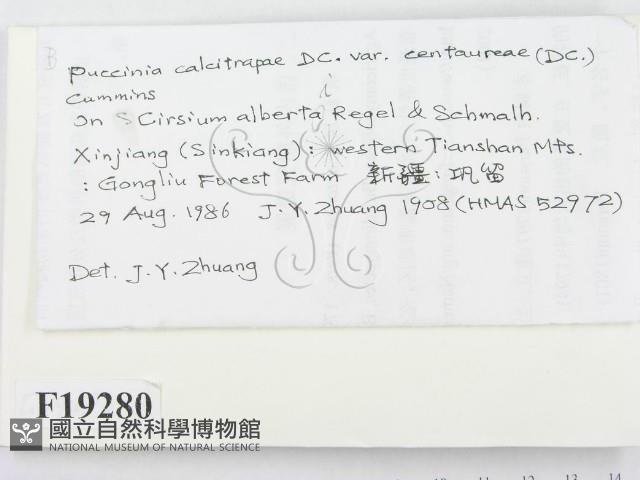 Puccinia calcitrapae DC. var. centaureae (DC.)
Cummins
On Cirsium alberta Regel & Schmalh.
Xinjiang (Sinkiang): western Tianshan Mts.
: Gongliu Forest Farm 新疆: 巩留
29 Aug. 1986 J. Y. Zhuang 1908 (HMAS 52972)
Det. J. Y. Zhuang
F19280
國立自然科學博物館
NATIONAL MUSEUM OF NATURAL SCIENCE
10 11 12 13 14